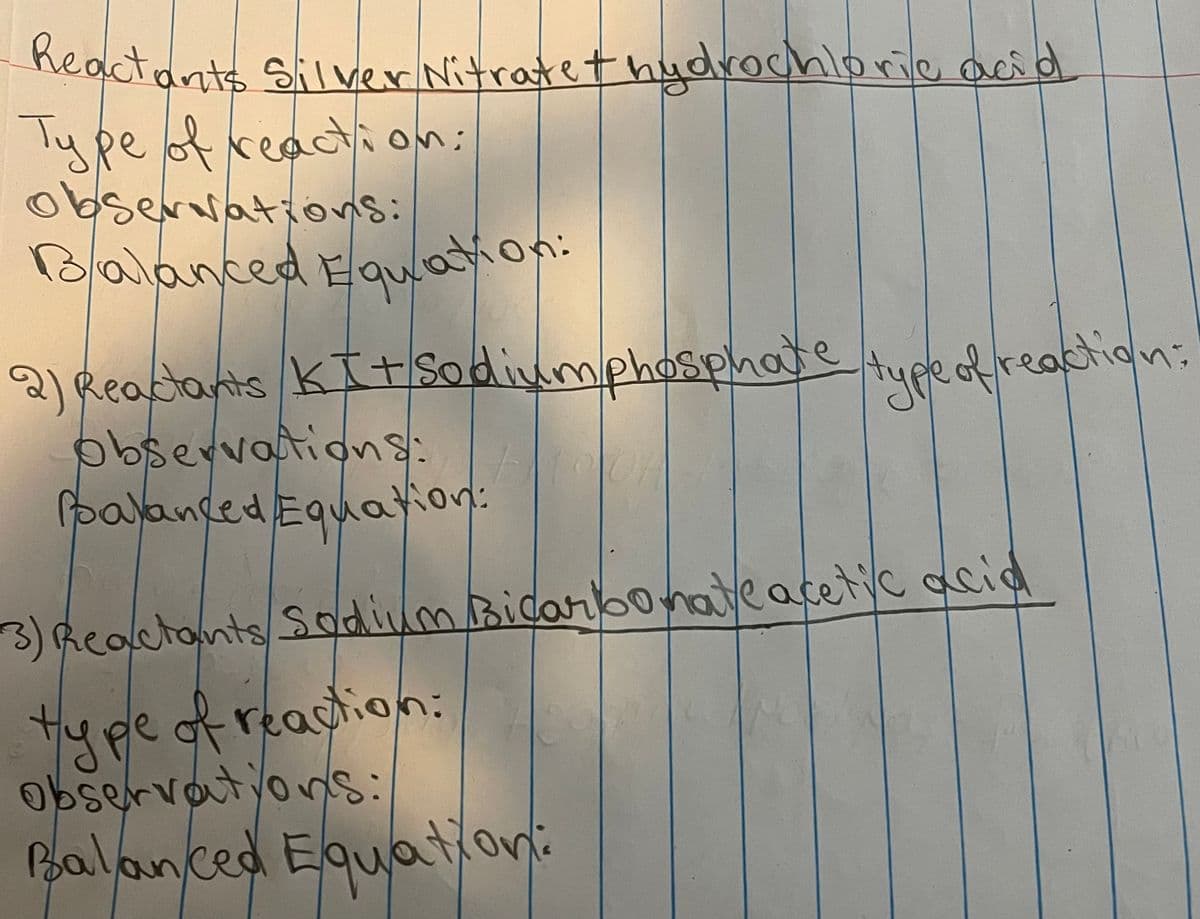 Reactants Silver Nitrate + hydrochloric acid
Type of reaction:
observations:
Balanced Equation:
2) Reactants KI + Sodium phosphate type of reaction:
Observations:
Balanced Equation:
3) Reactants Sodium Bicarbonate acetic acid
type of reaction:
observations:
Balanced Equation: